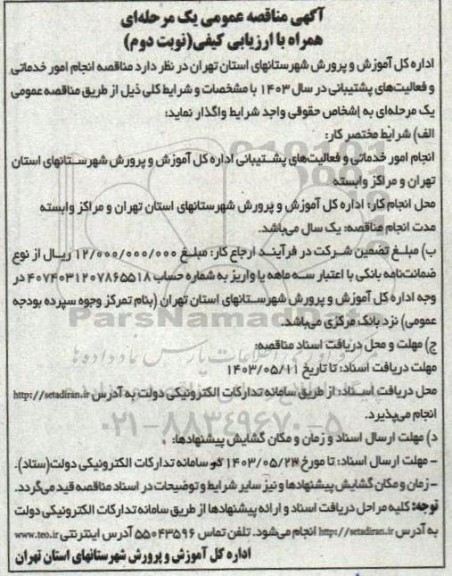 آگهی مناقصه عمومی یک مرحله‌ای
همراه با ارزیابی کیفی(نوبت دوم)
اداره کل آموزش و پرورش شهرستانهای استان تهران در نظر دارد مناقصه انجام امور خدماتی
و فعالیت‌های پشتیبانی در سال ۱۴۰۳ با مشخصات و شرایط کلی ذیل از طریق مناقصه عمومی
یک مرحله‌ای به اشخاص حقوقی واجد شرایط واگذار نماید:
الف) شرایط مختصر کار:
انجام امور خدماتی و فعالیت‌های پشتیبانی اداره کل آموزش و پرورش شهرستانهای استان
تهران و مراکز وابسته
محل انجام کار: اداره کل آموزش و پرورش شهرستانهای استان تهران و مراکز وابسته
مدت انجام مناقصه: یک سال می‌باشد.
ب) مبلغ تضمین شرکت در فرآیند ارجاع کار: مبلغ ۱۲/۰۰۰/۰۰۰/۰۰۰ ریال از نوع
ضمانت‌نامه بانکی با اعتبار سه ماهه یا واریز به شماره حساب ۴۰۷۴۰۳۱۲۰۷۸۶۵۵۱۸ در
وجه اداره کل آموزش و پرورش شهرستانهای استان تهران (بنام تمرکز وجوه سپرده بودجه
عمومی) نزد بانک مرکزی می‌باشد.
ParsNamadData
ج) مهلت و محل دریافت اسناد مناقصه:
مهلت دریافت اسناد: تا تاریخ ۱۴۰۳/۰۵/۱۱
محل دریافت اسناد: از طریق سامانه تدارکات الکترونیکی دولت به آدرس http://setadiran.ir
انجام می‌پذیرد.
۰۲۱-۸۸۳۴۹۶۷۰-۵
د) مهلت ارسال اسناد و زمان و مکان گشایش پیشنهادها:
- مهلت ارسال اسناد: تا مورخ ۱۴۰۳/۰۵/۲۳ در سامانه تدارکات الکترونیکی دولت(ستاد).
- زمان و مکان گشایش پیشنهادها و نیز سایر شرایط و توضیحات در اسناد مناقصه قید می‌گردد.
توجه: کلیه مراحل دریافت اسناد و ارائه پیشنهادها از طریق سامانه تدارکات الکترونیکی دولت
به آدرس http://setadiran.ir انجام می‌شود. تلفن تماس ۵۵۰۴۳۵۹۶ آدرس اینترنتی www.teo.ir
اداره کل آموزش و پرورش شهرستانهای استان تهران